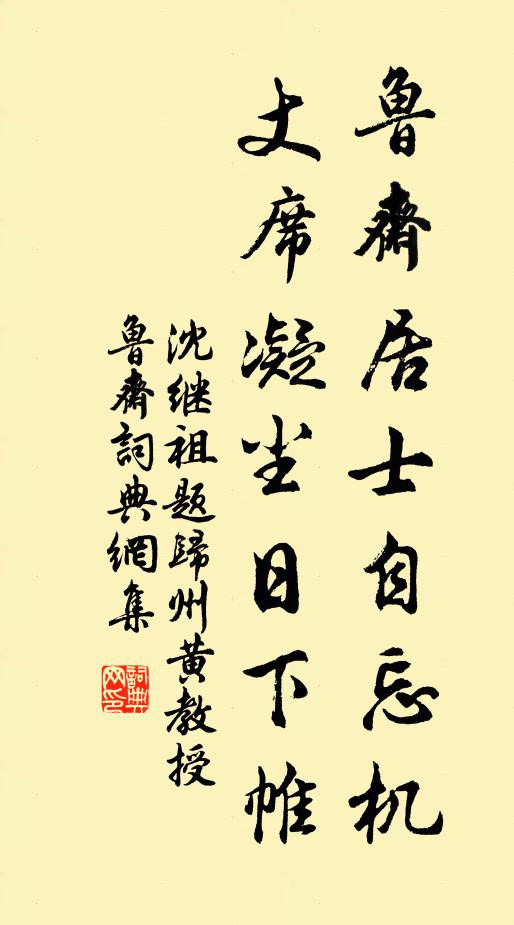 鲁斋居士自忘机
丈席凝尘日下帷
沈继祖题歸州黄教授
鲁斋詞典網集
詞典网印